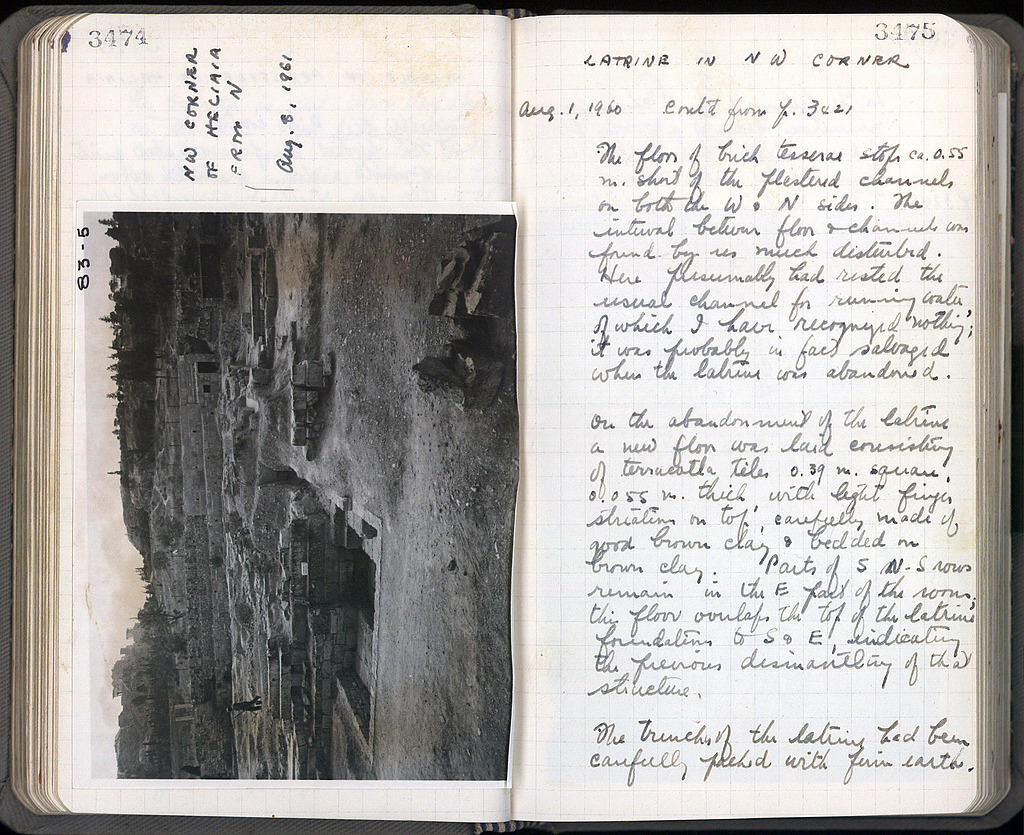 3474
NW CORNER
OF HELIAIA
FROM N
Aug. 8, 1961
83-5
3475
LATRINE IN NW CORNER
Aug. 1, 1960 Cont'd from p. 3421
The floor of brick tesserae stops ca. 0.55
m. short of the plastered channels
on both the W & N sides. The
interval between floor & channels was
found by us much disturbed.
Here presumably had rested the
usual channel for running water
of which I have recognized nothing;
it was probably in fact salvaged
when the latrine was abandoned.
On the abandonment of the latrine
a new floor was laid consisting
of terracotta tiles 0.39 m. square,
0.055 m. thick with light finger
striations on top, carefully made of
good brown clay & bedded on
brown clay. Parts of 5 N-S rows
remain in the E part of the room;
this floor overlaps the top of the latrine
foundations to S & E, indicating
the previous dismantling of that
structure.
The trenches of the latrine had been
carefully packed with firm earth.